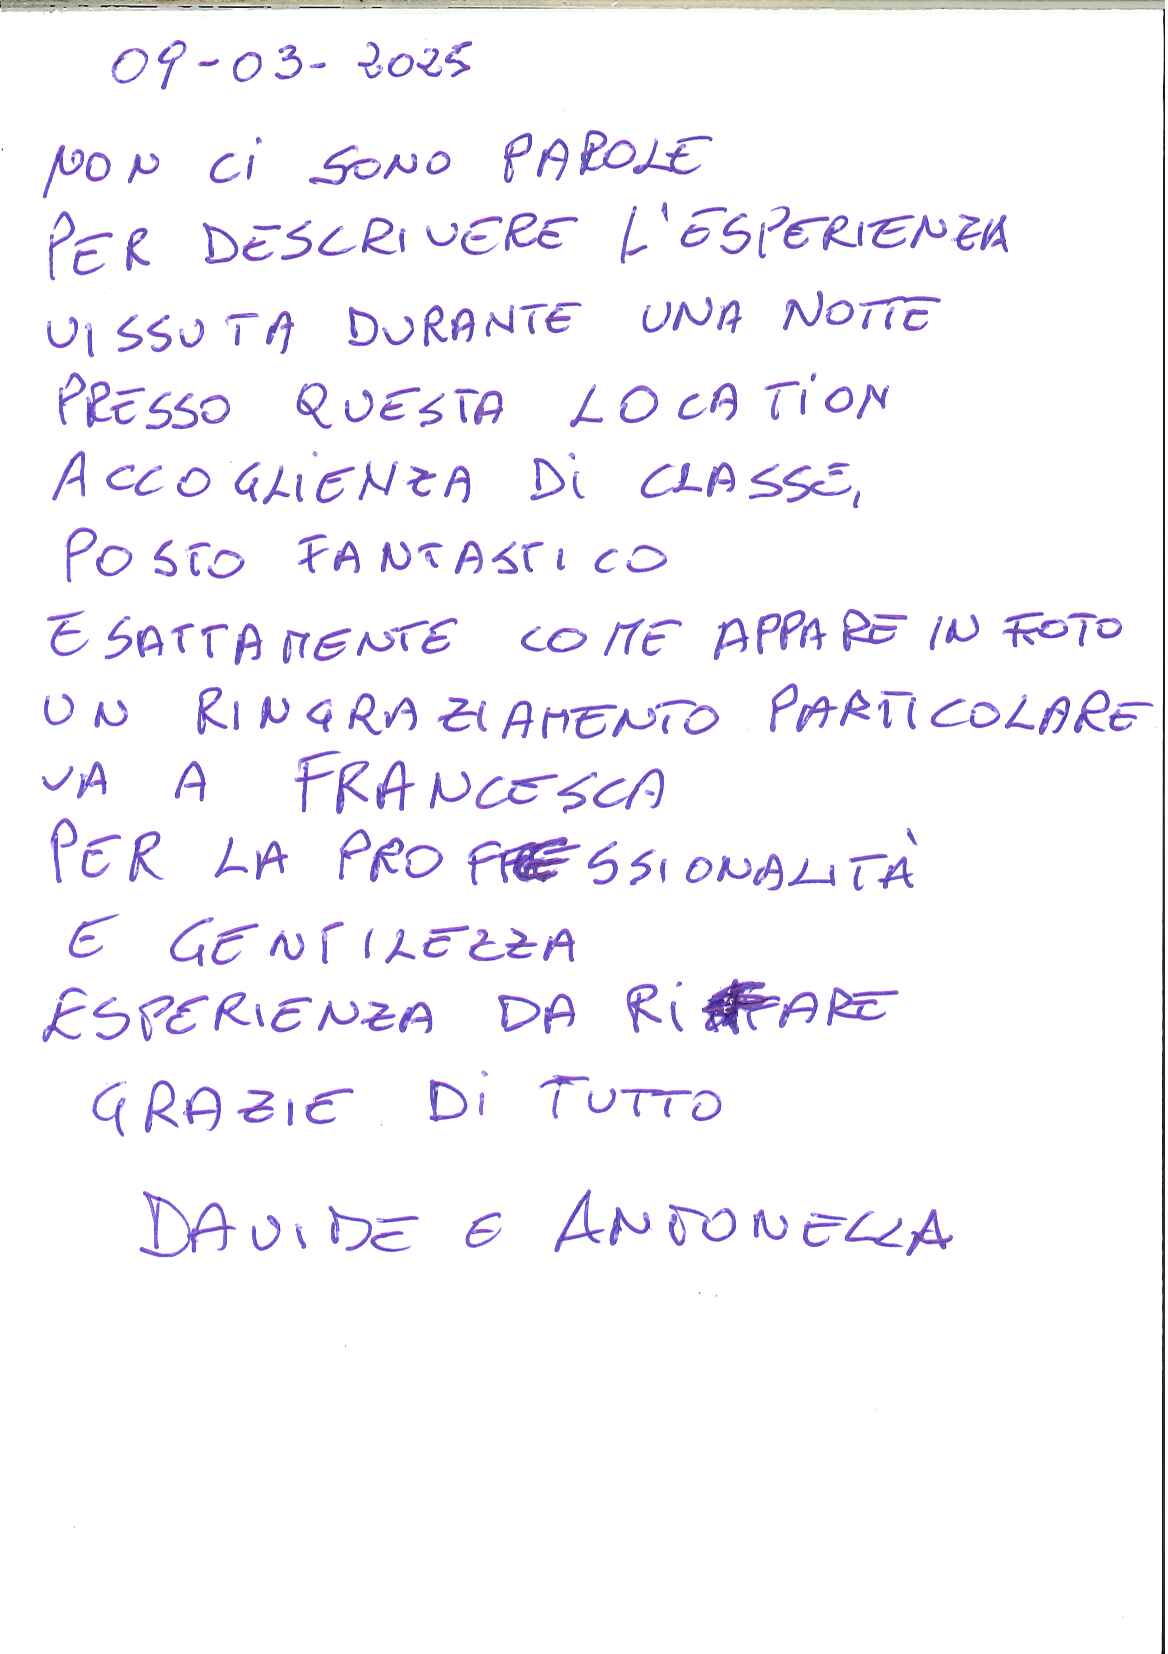 09-03-2025
NON Ci SONO PAROLE
PER DESCRIVERE L'ESPERIENZA
VISSUTA DURANTE UNA NOTTE
PRESSO QUESTA LOCATiON
ACCOGLiENZA Di CLASSE,
POSTO FANTASTICO
ESATTAMENTE COME APPARE IN FOTO
UN RINGRAZIAMENTO PARTICOLARE
VA A FRANCESCA
PER LA PROFESSIONALITÀ
E GENTILEZZA
ESPERIENZA DA RiFARE
GRAZIE Di TUTTO
DAVIDE E ANTONELLA